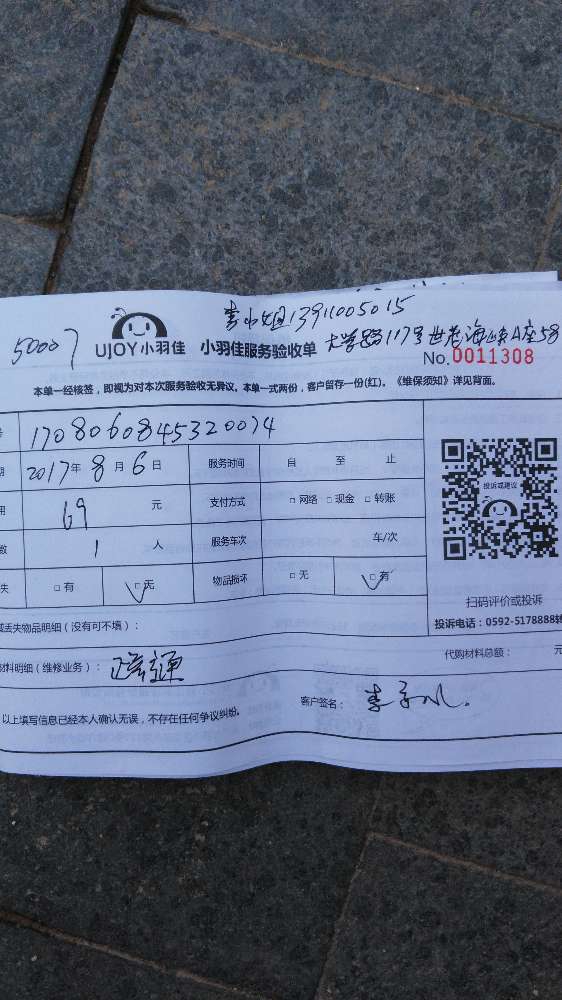 李小姐13911005015
50007
UJOY小羽佳 小羽佳服务验收单 大学路117号世茂海峡A座58
No.0011308
本单一经核签，即视为对本次服务验收无异议。本单一式两份，客户留存一份(红)。《维保须知》详见背面。
号 1708060845320074
期 2017年8月6日 服务时间 自 至 止
用 69 元 支付方式 □网络 □现金 □转账
数 1 人 服务车次 车/次
失 □有 □无 物品损坏 □无 □有
投诉或建议
扫码评价或投诉
投诉电话：0592-5178888转
或丢失物品明细（没有可不填）：
材料明细（维修业务）： 代购材料总额： 元
以上填写信息已经本人确认无误，不存在任何争议纠纷。 客户签名：